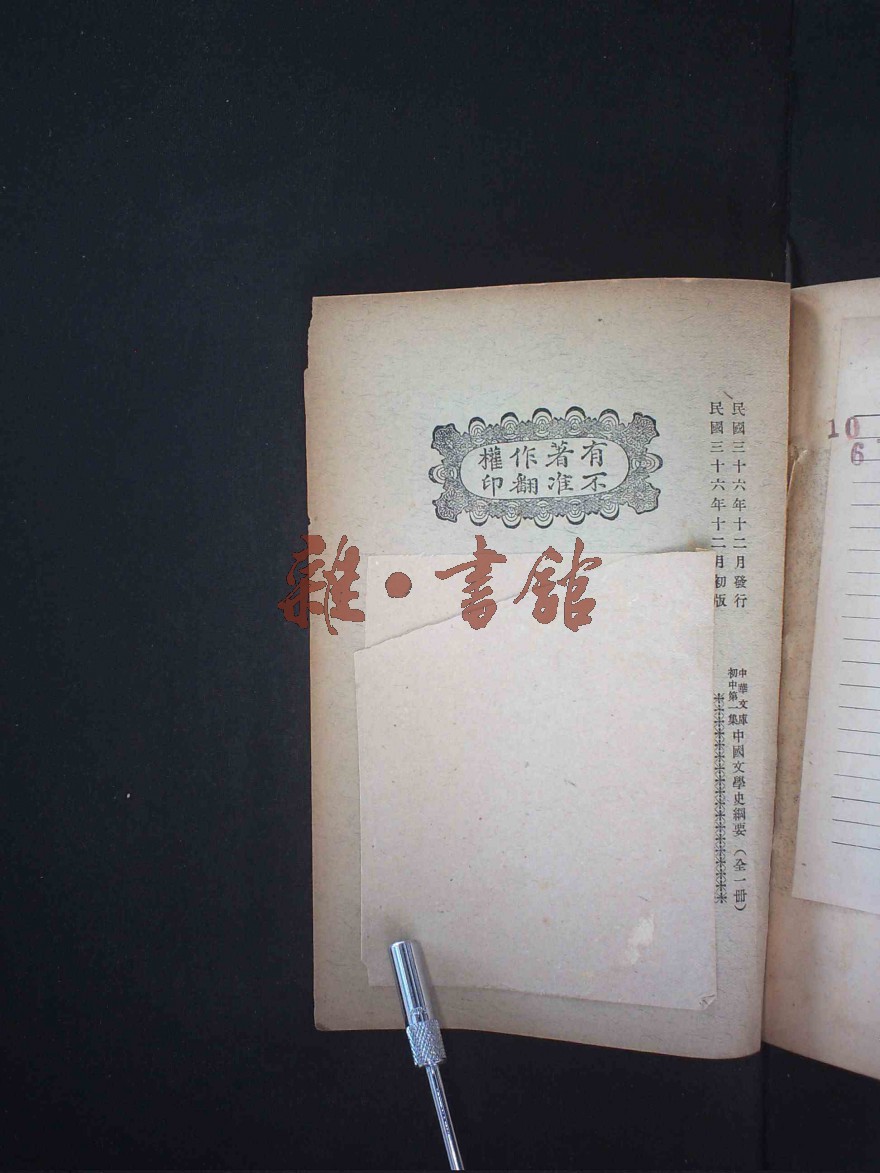 民國三十六年十二月發行
民國三十六年十二月初版
中華文庫
初中第一集
中國文學史綱要（全一冊）
有著作權
不准翻印
雜·書館
10
6